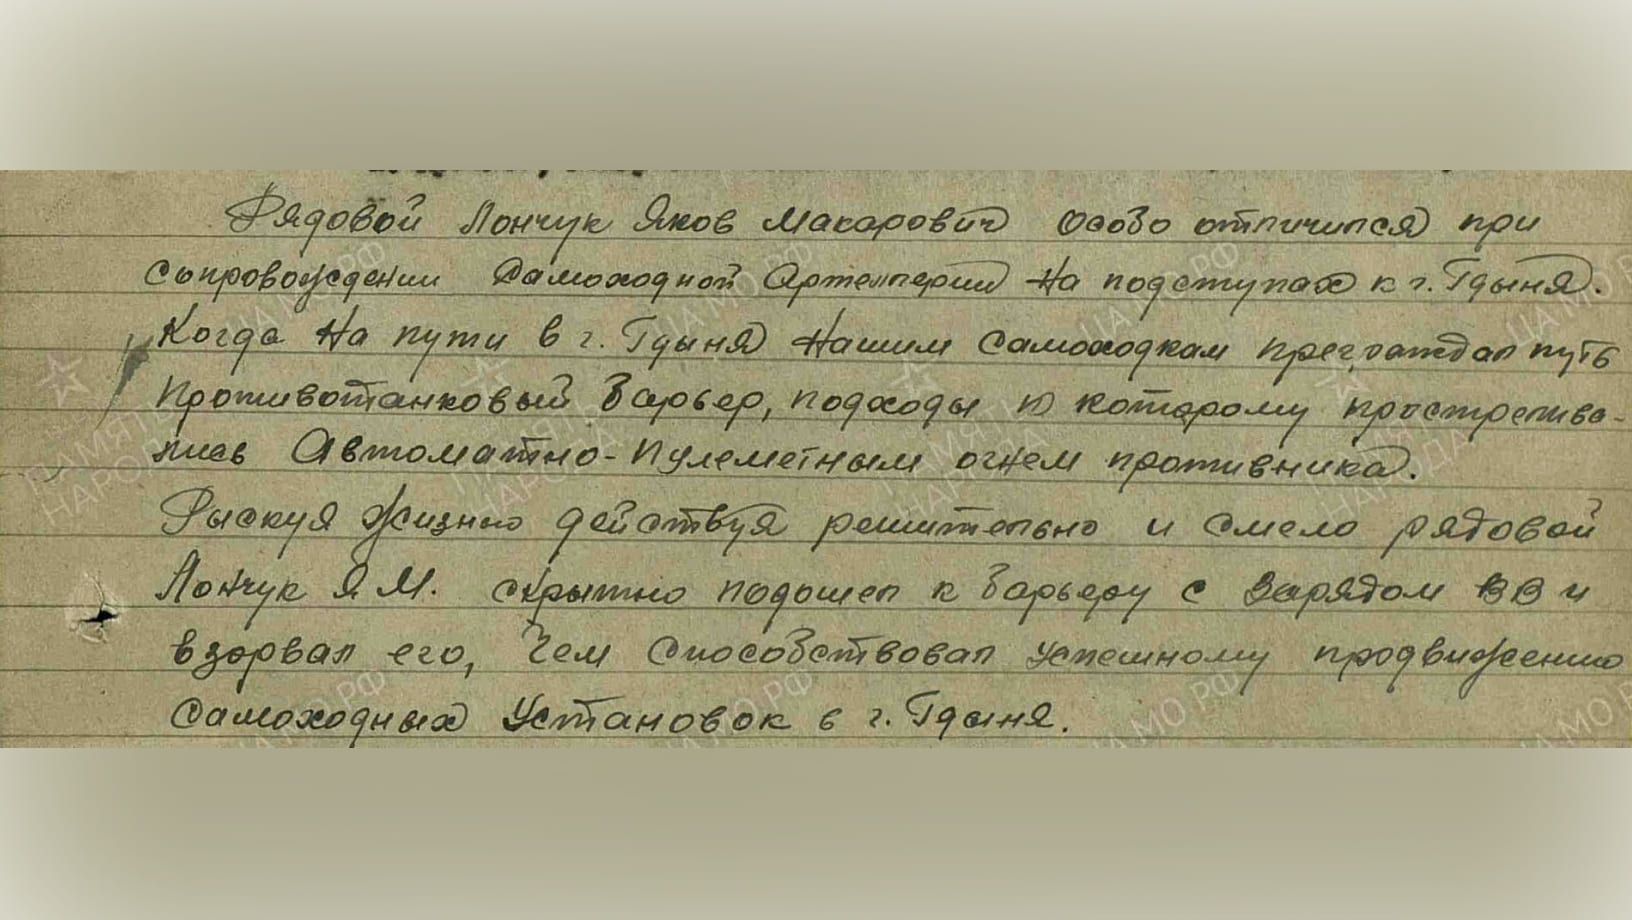 Рядовой Лончук Яков Макарович особо отличился при
сопровождении Самоходной Артеллерии на подступах к г. Гдыня.
Когда на пути в г. Гдыня нашим самоходкам преграждал путь
Противотанковый Барьер, подходы к которому простреліва-
лись Автоматно-Пулеметным огнем противника.
Рыскуя жизнью действуя решительно и смело рядовой
Лончук Я М. скрытно подошел к барьеру с зарядом ВВ и
взорвал его, чем способствовал успешному продвижению
самоходных Установок в г. Гдыня.
ПАМЯТЬ НАРОДА
ЦА МО РФ